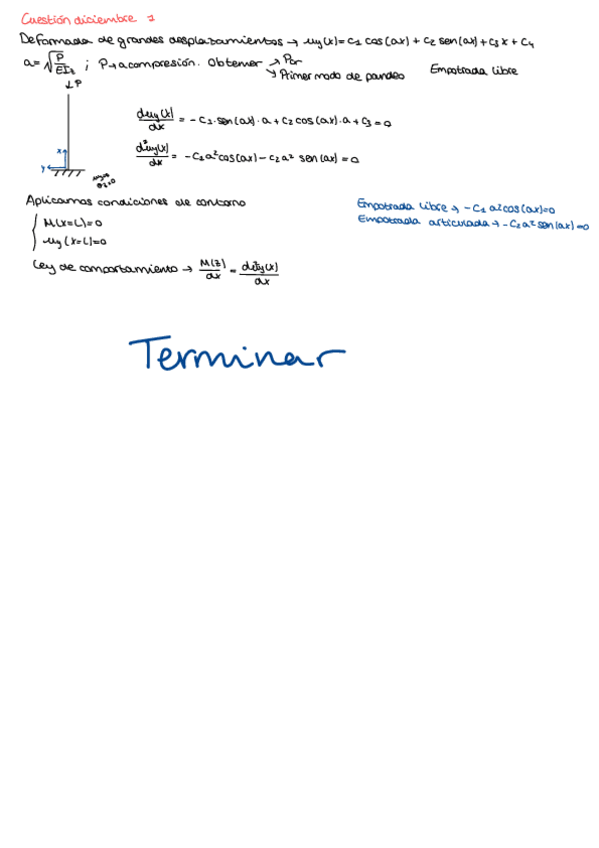 Cuestión diciembre 1
Deformada de grandes desplazamientos → uy(x)= C1 cos(ax) + C2 sen(ax) + C3 x + C4
a=√(P/EIz) ; P→ a compresión. Obtener → Pcr
↘ Primer modo de pandeo
Empotrada libre
↓P
duy(x)/dx = -C1·sen(ax)·a + C2 cos(ax)·a + C3 = 0
d²uy(x)/dx = -C1a²cos(ax) - C2a² sen(ax) = 0
x
y
Aplicamos condiciones de contorno
M(x=L)=0
uy(x=L)=0
Empotrada libre → -C1 a²cos(ax)=0
Empotrada articulada → -C2a²sen(ax)=0
Ley de comportamiento → M(z)/dx = d²uy(x)/dx
Terminar